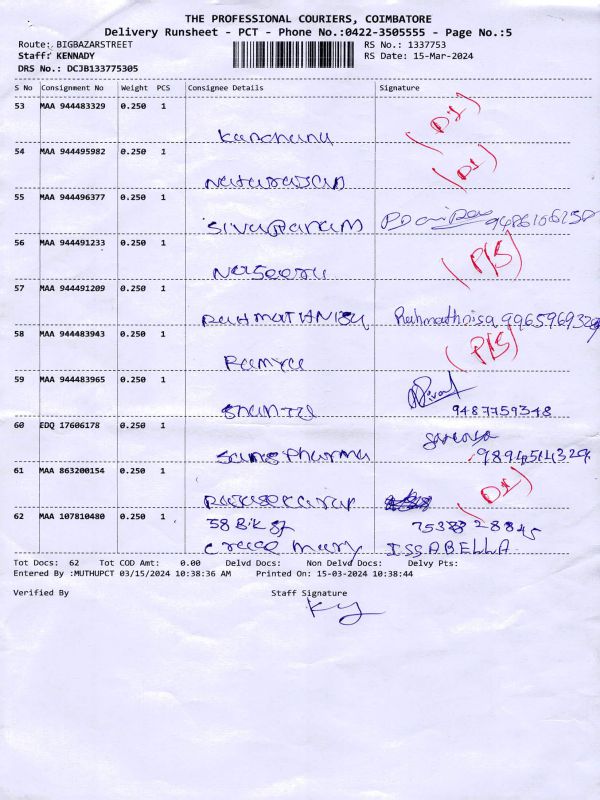 THE PROFESSIONAL COURIERS, COIMBATORE
Delivery Runsheet - PCT - Phone No.:0422-3505555 - Page No.:5
Route: BIGBAZARSTREET RS No.: 1337753
Staff: KENNADY RS Date: 15-Mar-2024
DRS No.: DCJB133775305
S No Consignment No Weight PCS Consignee Details Signature
53 MAA 944483329 0.250 1
Kanchana (D1)
54 MAA 944495982 0.250 1
Natarajan (D1)
55 MAA 944496377 0.250 1
Sivapanam 9486106258
56 MAA 944491233 0.250 1
Naseera (P/S)
57 MAA 944491209 0.250 1
RAHMATHNISA Rahmathnisa 9965969329
58 MAA 944483943 0.250 1
Ramya (P/S)
59 MAA 944483965 0.250 1
Shanta 9487759348
60 EDQ 17606178 0.250 1
Sans Pharma 9894514329
61 MAA 863200154 0.250 1
Rajasekaran (D1)
62 MAA 107810480 0.250 1
58 Bik St
Grace Mary ISSABELLA
Tot Docs: 62 Tot COD Amt: 0.00 Delvd Docs: Non Delvd Docs: Delvy Pts:
Entered By :MUTHUPCT 03/15/2024 10:38:36 AM Printed On: 15-03-2024 10:38:44
Verified By Staff Signature